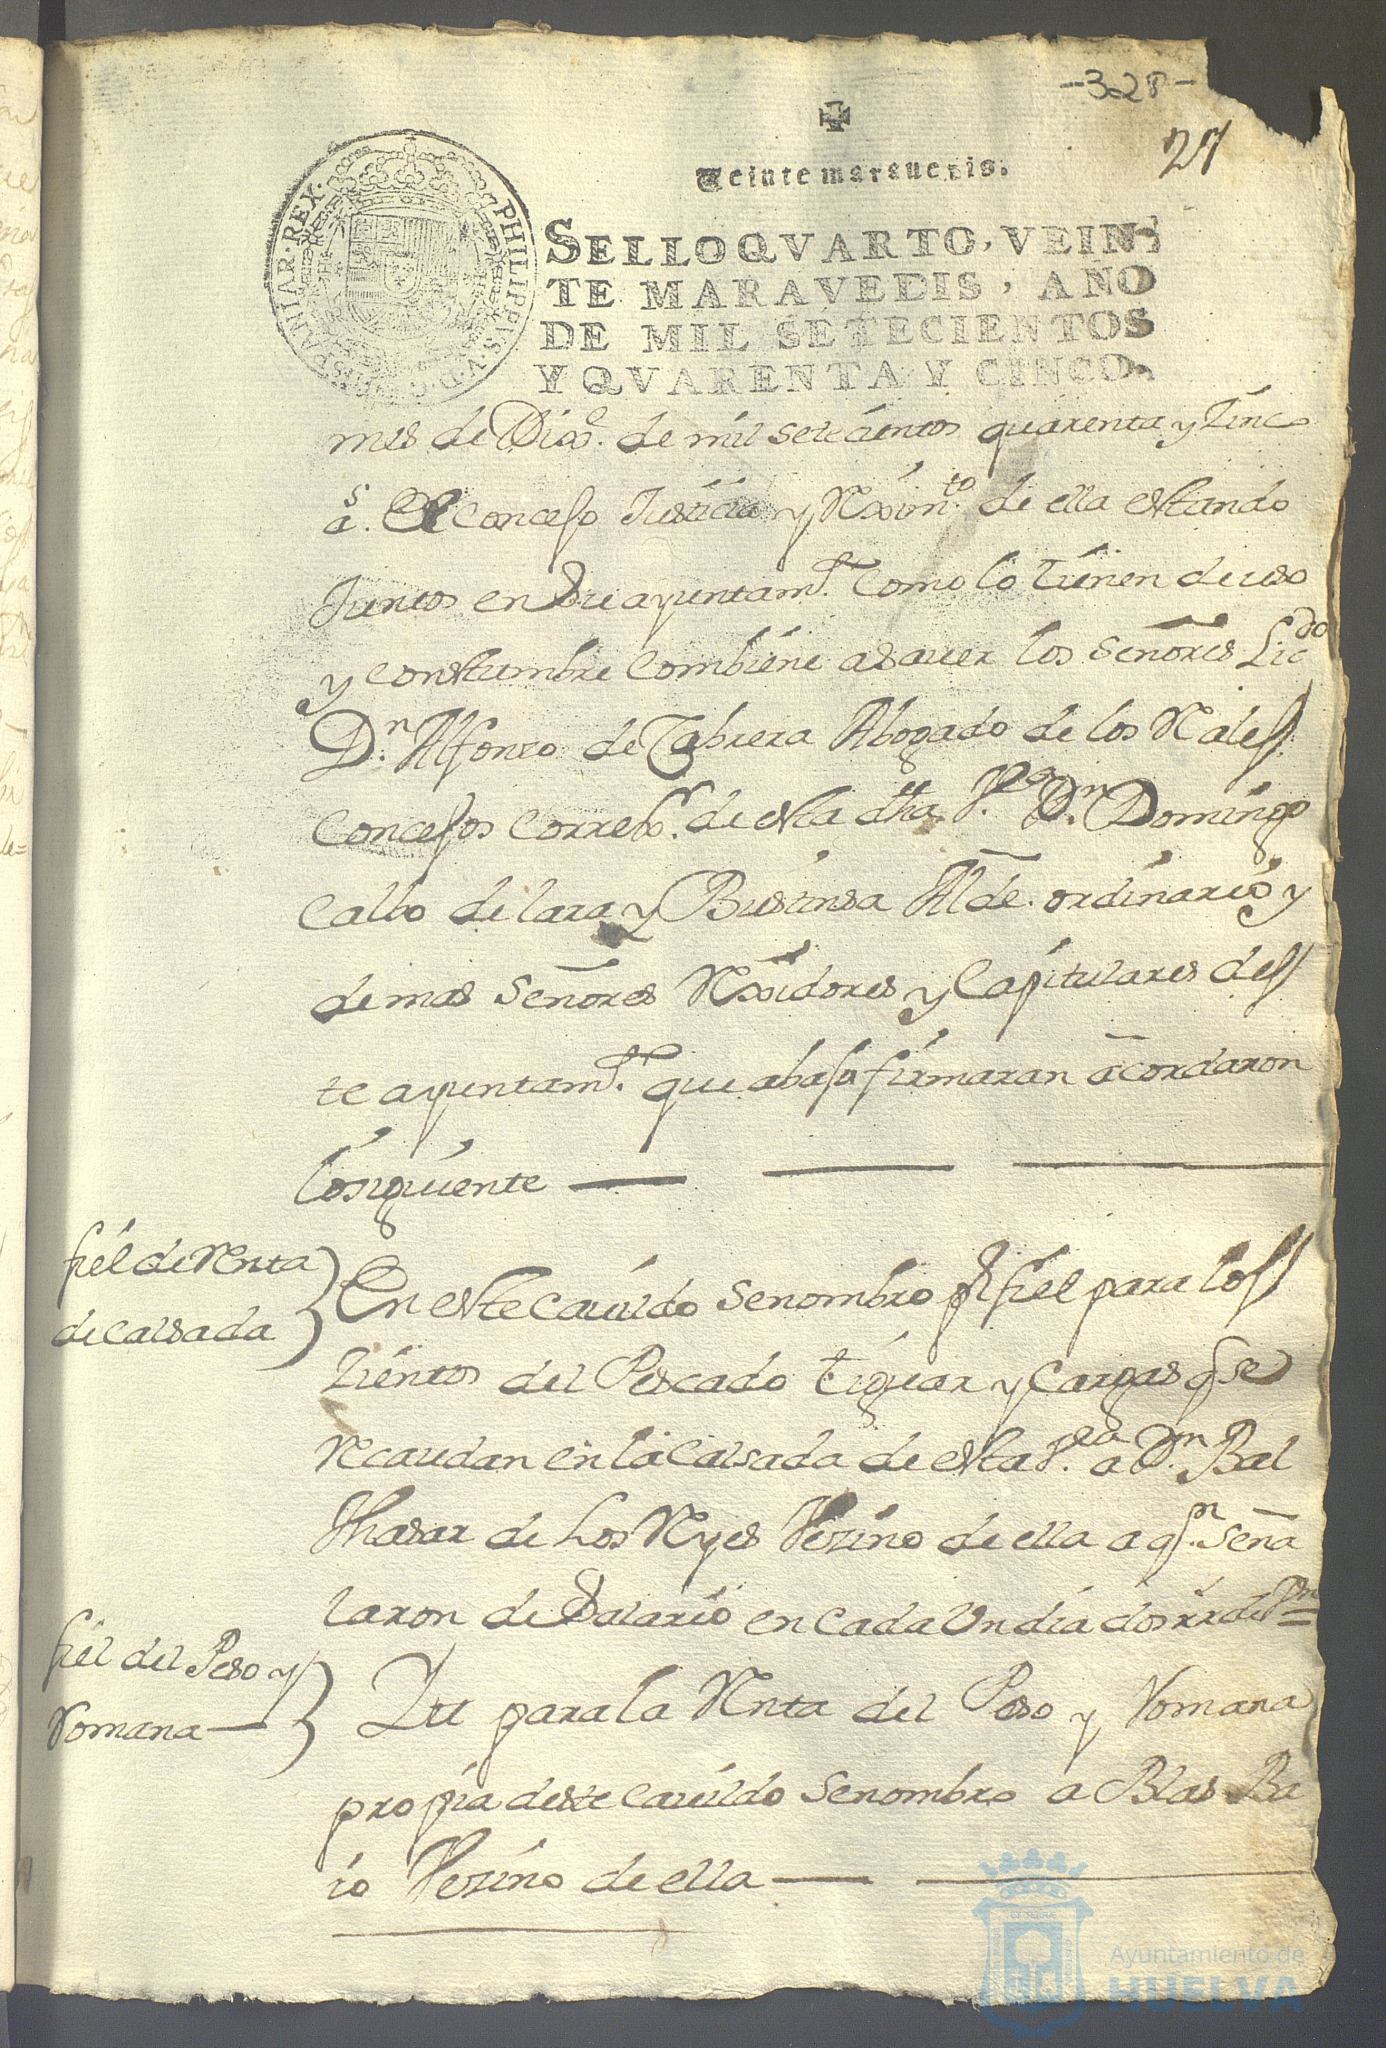 -328-
27
Veinte maravedis.
PHILIPPVS·V·D·G· HISPANIAR·REX·
SELLO QVARTO, VEIN-
TE MARAVEDIS, AÑO
DE MIL SETECIENTOS
Y QVARENTA Y CINCO.
mes de Dixe. de mil setecientos quarenta y Zinco
as. El conceso Justicia y Rxim.to de ella estando
Juntos en Su ayuntam.to como lo tienen de uso
y constumbre combiene asauer los Señores Licdo
D.n Alfonso de Cabrera Abogado de los Rales
Concesos correx.r de esta dha V.a D.n Domingo
Calbo de lara y Bustinsa Alde. ordinario y
demas Señores Rxidores y Capitulares des
te ayuntam.to que abaso firmaran acordaron
Losiguiente
fiel de Renta
de calsada
En este cauildo Senombro pr fiel para los
Zientos del Pescado tiguar y Cargas q se
Recaudan en la calsada de esta V.a a D.n Bal
thasar de Los Reyes Vezino de ella a q.n Seña
laron de Salario en cada Un dia dos rr de Vn
fiel del Peso y
Romana
Itt para la Renta del Peso y Romana
propia deste cauildo Senombro a Blas Ba
io Vezino de ella
Ayuntamiento de
HUELVA